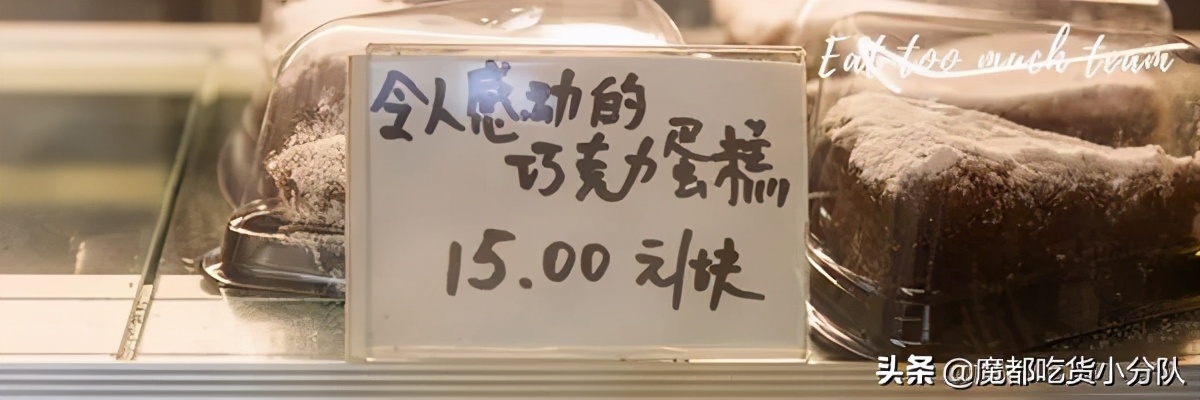 Eat too much team
令人感动的
巧克力蛋糕
15.00元/块
头条 @魔都吃货小分队